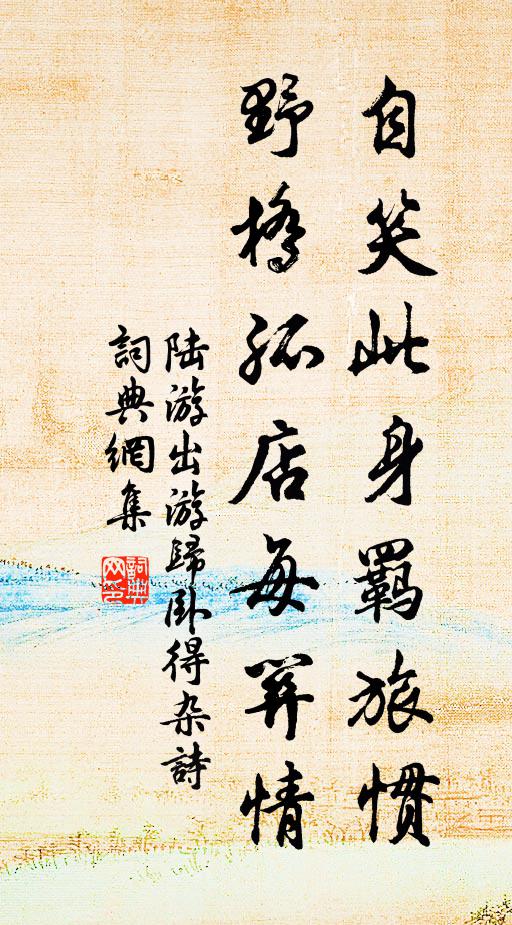 自笑此身羈旅慣
野橋孤店每關情
陆游出游歸卧得杂詩
詞典網集
詞典网印